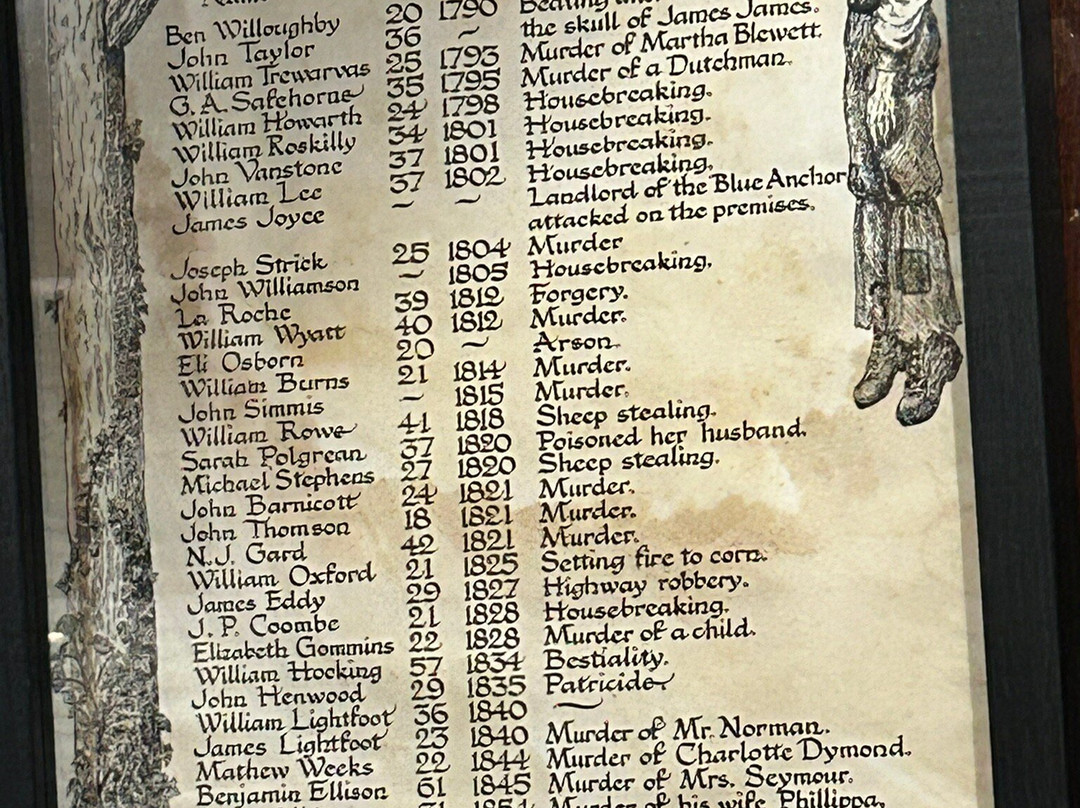 Ben Willoughby 20 1790
John Taylor 36 ~ the skull of James James.
William Trewarvas 25 1793 Murder of Martha Blewett.
G. A. Safehorne 35 1795 Murder of a Dutchman.
William Howarth 24 1798 Housebreaking.
William Roskilly 34 1801 Housebreaking.
John Vanstone 37 1801 Housebreaking.
William Lee 37 1802 Housebreaking.
James Joyce ~ ~ Landlord of the Blue Anchor
attacked on the premises.
Joseph Strick 25 1804 Murder
John Williamson ~ 1805 Housebreaking.
La Roche 39 1812 Forgery.
William Wyatt 40 1812 Murder.
Eli Osborn 20 ~ Arson.
William Burns 21 1814 Murder.
John Simmis ~ 1815 Murder.
William Rowe 41 1818 Sheep stealing.
Sarah Polgrean 37 1820 Poisoned her husband.
Michael Stephens 27 1820 Sheep stealing.
John Barnicott 24 1821 Murder.
John Thomson 18 1821 Murder.
N.J. Gard 42 1821 Murder.
William Oxford 21 1825 Setting fire to corn.
James Eddy 29 1827 Highway robbery.
J. P. Coombe 21 1828 Housebreaking.
Elizabeth Commins 22 1828 Murder of a child.
William Hocking 57 1834 Bestiality.
John Henwood 29 1835 Patricide
William Lightfoot 36 1840 ~
James Lightfoot 23 1840 Murder of Mr. Norman.
Mathew Weeks 22 1844 Murder of Charlotte Dymond.
Benjamin Ellison 61 1845 Murder of Mrs. Seymour.
Murder of his wife Phillippa.